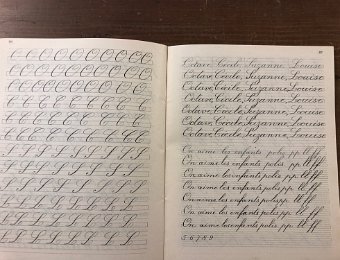 O O O O O O O O O
O O O O O O O O O
O O O O O O O O O
C C C C C C C C C
C C C C C C C C C
C C C C C C C C C
S S S S S S S S S
S S S S S S S S S
S S S S S S S S S
L L L L L L L L
L L L L L L L L
L L L L L L L L
Octave, Cécile, Suzanne, Louise
Octave, Cécile, Suzanne, Louise
Octave, Cécile, Suzanne, Louise
Octave, Cécile, Suzanne, Louise
Octave, Cécile, Suzanne, Louise
Octave, Cécile, Suzanne, Louise
Octave, Cécile, Suzanne, Louise
On aime les enfants polis. pp. tt. ff
On aime les enfants polis. pp. tt. ff
On aime les enfants polis. pp. tt. ff
On aime les enfants polis. pp. tt. ff
On aime les enfants polis. pp. tt. ff
On aime les enfants polis. pp. tt. ff
On aime les enfants polis. pp. tt. ff
5 6 7 8 9